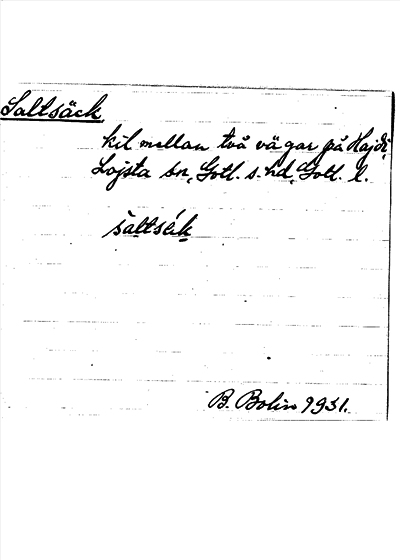 Saltsäck
kil mellan två vägar på Hajdi,
Lojsta sn, Gotl. s. hd, Gotl. l.
saltsäk
B. Bolin 1931.